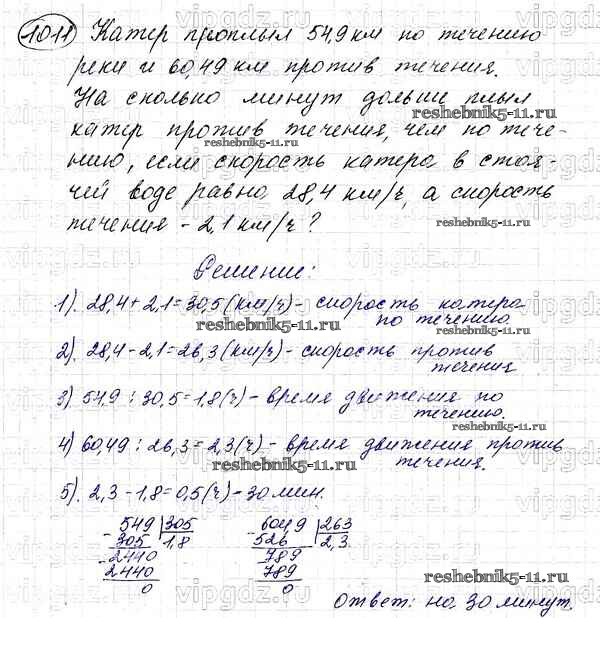 1011 Катер проплыл 54,9 км по течению
реки и 60,49 км против течения.
На сколько минут дольше плыл
reshebnik5-11.ru
катер против течения, чем по тече-
reshebnik5-11.ru
нию, если скорость катера в стоя-
чей воде равна 28,4 км/ч, а скорость
течения - 2,1 км/ч?
reshebnik5-11.ru
Решение:
1). 28,4 + 2,1 = 30,5 (км/ч) - скорость катера
по течению.
reshebnik5-11.ru
2). 28,4 - 2,1 = 26,3 (км/ч) - скорость против
течения
reshebnik5-11.ru
3) 54,9 : 30,5 = 1,8 (ч) - время движения по
течению.
reshebnik5-11.ru
4) 60,49 : 26,3 = 2,3 (ч) - время движения против
течения.
reshebnik5-11.ru
5). 2,3 - 1,8 = 0,5 (ч) - 30 мин.
549 305 6049 263
- 305 1,8 - 526 2,3
- 2440 - 789
2440 789
0 0
reshebnik5-11.ru
Ответ: на 30 минут.
vipgdz.ru